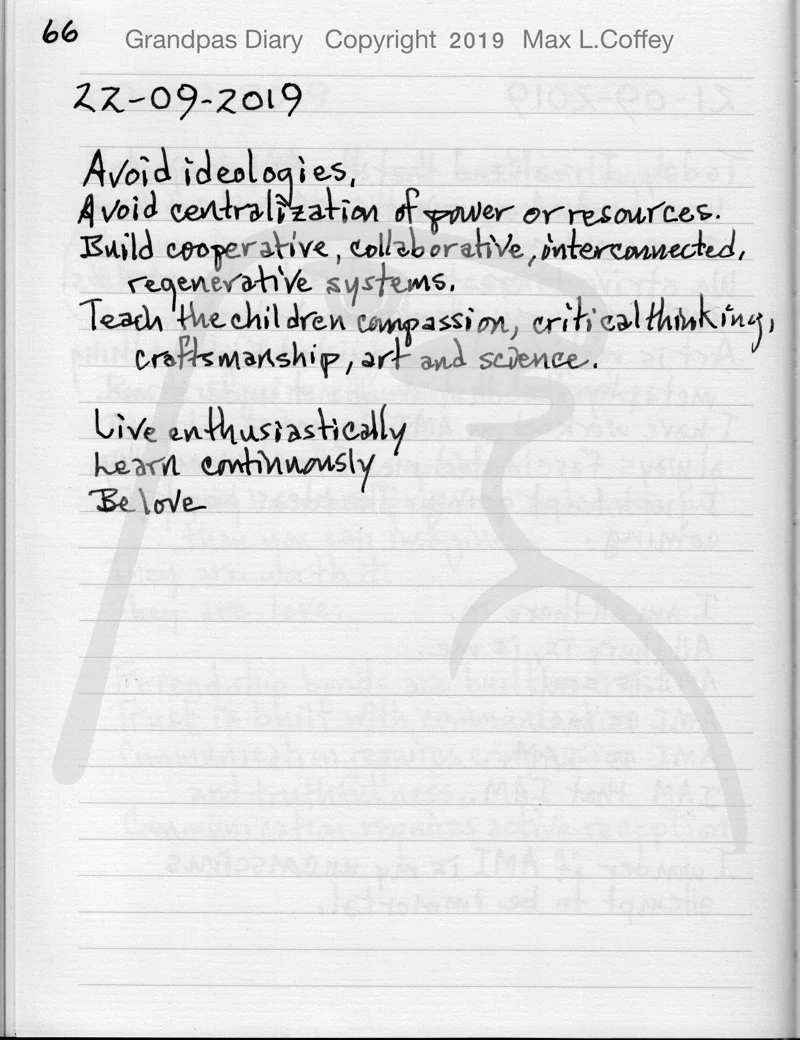 66 Grandpas Diary Copyright 2019 Max L.Coffey
22-09-2019
Avoid ideologies,
Avoid centralization of power or resources.
Build cooperative, collaborative, interconnected,
regenerative systems.
Teach the children compassion, critical thinking,
craftsmanship, art and science.
Live enthusiastically
Learn continuously
Be love